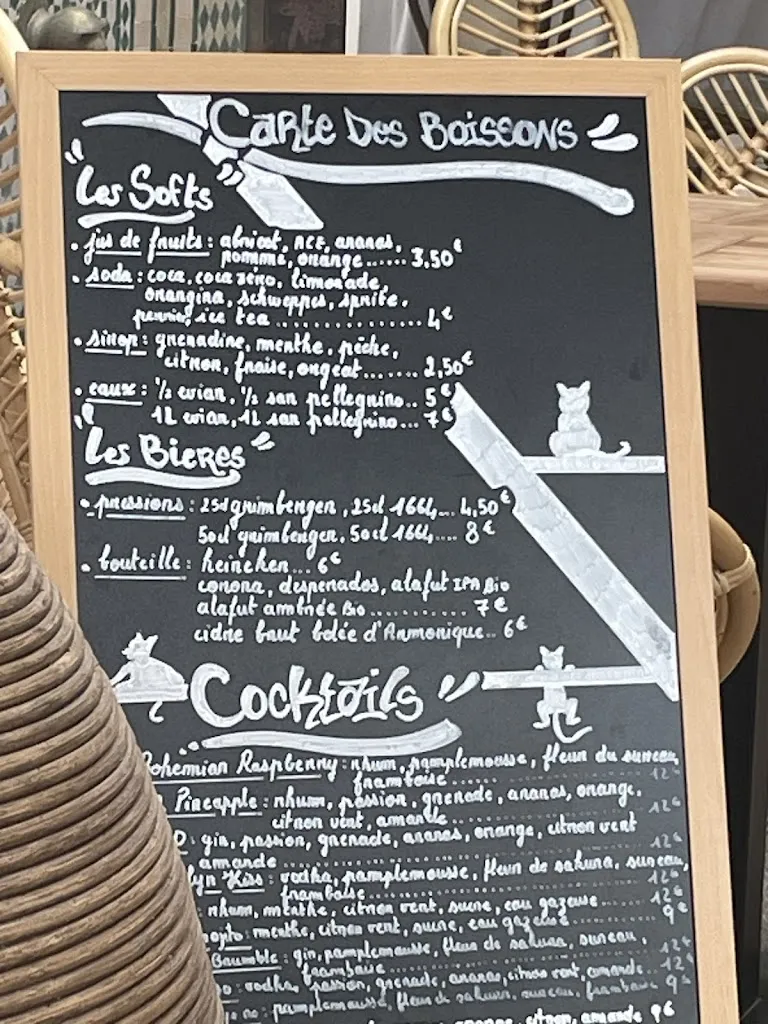 Carte Des Boissons
Les Softs
• jus de fruits : abricot, ACE, ananas,
pomme, orange...... 3,50€
• soda : coca, coca zéro, limonade,
orangina, schweppes, sprite,
perrier, ice tea .............. 4€
• sirop : grenadine, menthe, pêche,
citron, fraise, orgeat....... 2,50€
• eaux : ½ evian, ½ san pellegrino.. 5€
1L evian, 1L san pellegrino... 7€
Les Bieres
• pressions : 25cl grimbergen, 25cl 1664... 4,50€
50cl grimbergen, 50cl 1664,.... 8€
• bouteille : heineken... 6€
corona, desperados, alafut IPA Bio
alafut ambrée Bio............ 7€
cidre brut bolée d'Armorique.. 6€
Cocktails
Bohemian Raspberry : rhum, pamplemousse, fleur du sureau,
framboise .................. 12€
Pineapple : rhum, passion, grenade, ananas, orange,
citron vert, amande .................. 12€
: gin, passion, grenade, ananas, orange, citron vert
amande .................. 12€
lyn Kiss : vodka, pamplemousse, fleur de sakura, sureau,
framboise .................. 12€
: rhum, menthe, citron vert, sucre, eau gazeuse ..... 12€
ojito : menthe, citron vert, sucre, eau gazeuse ..... 9€
Bramble : gin, pamplemousse, fleur de sakura, sureau,
framboise .................. 12€
o : vodka, passion, grenade, ananas, citron vert, amande.. 12€
: pamplemousse, fleur de sakura, sureau, framboise 9€
ananas, orange, citron, amande 9€